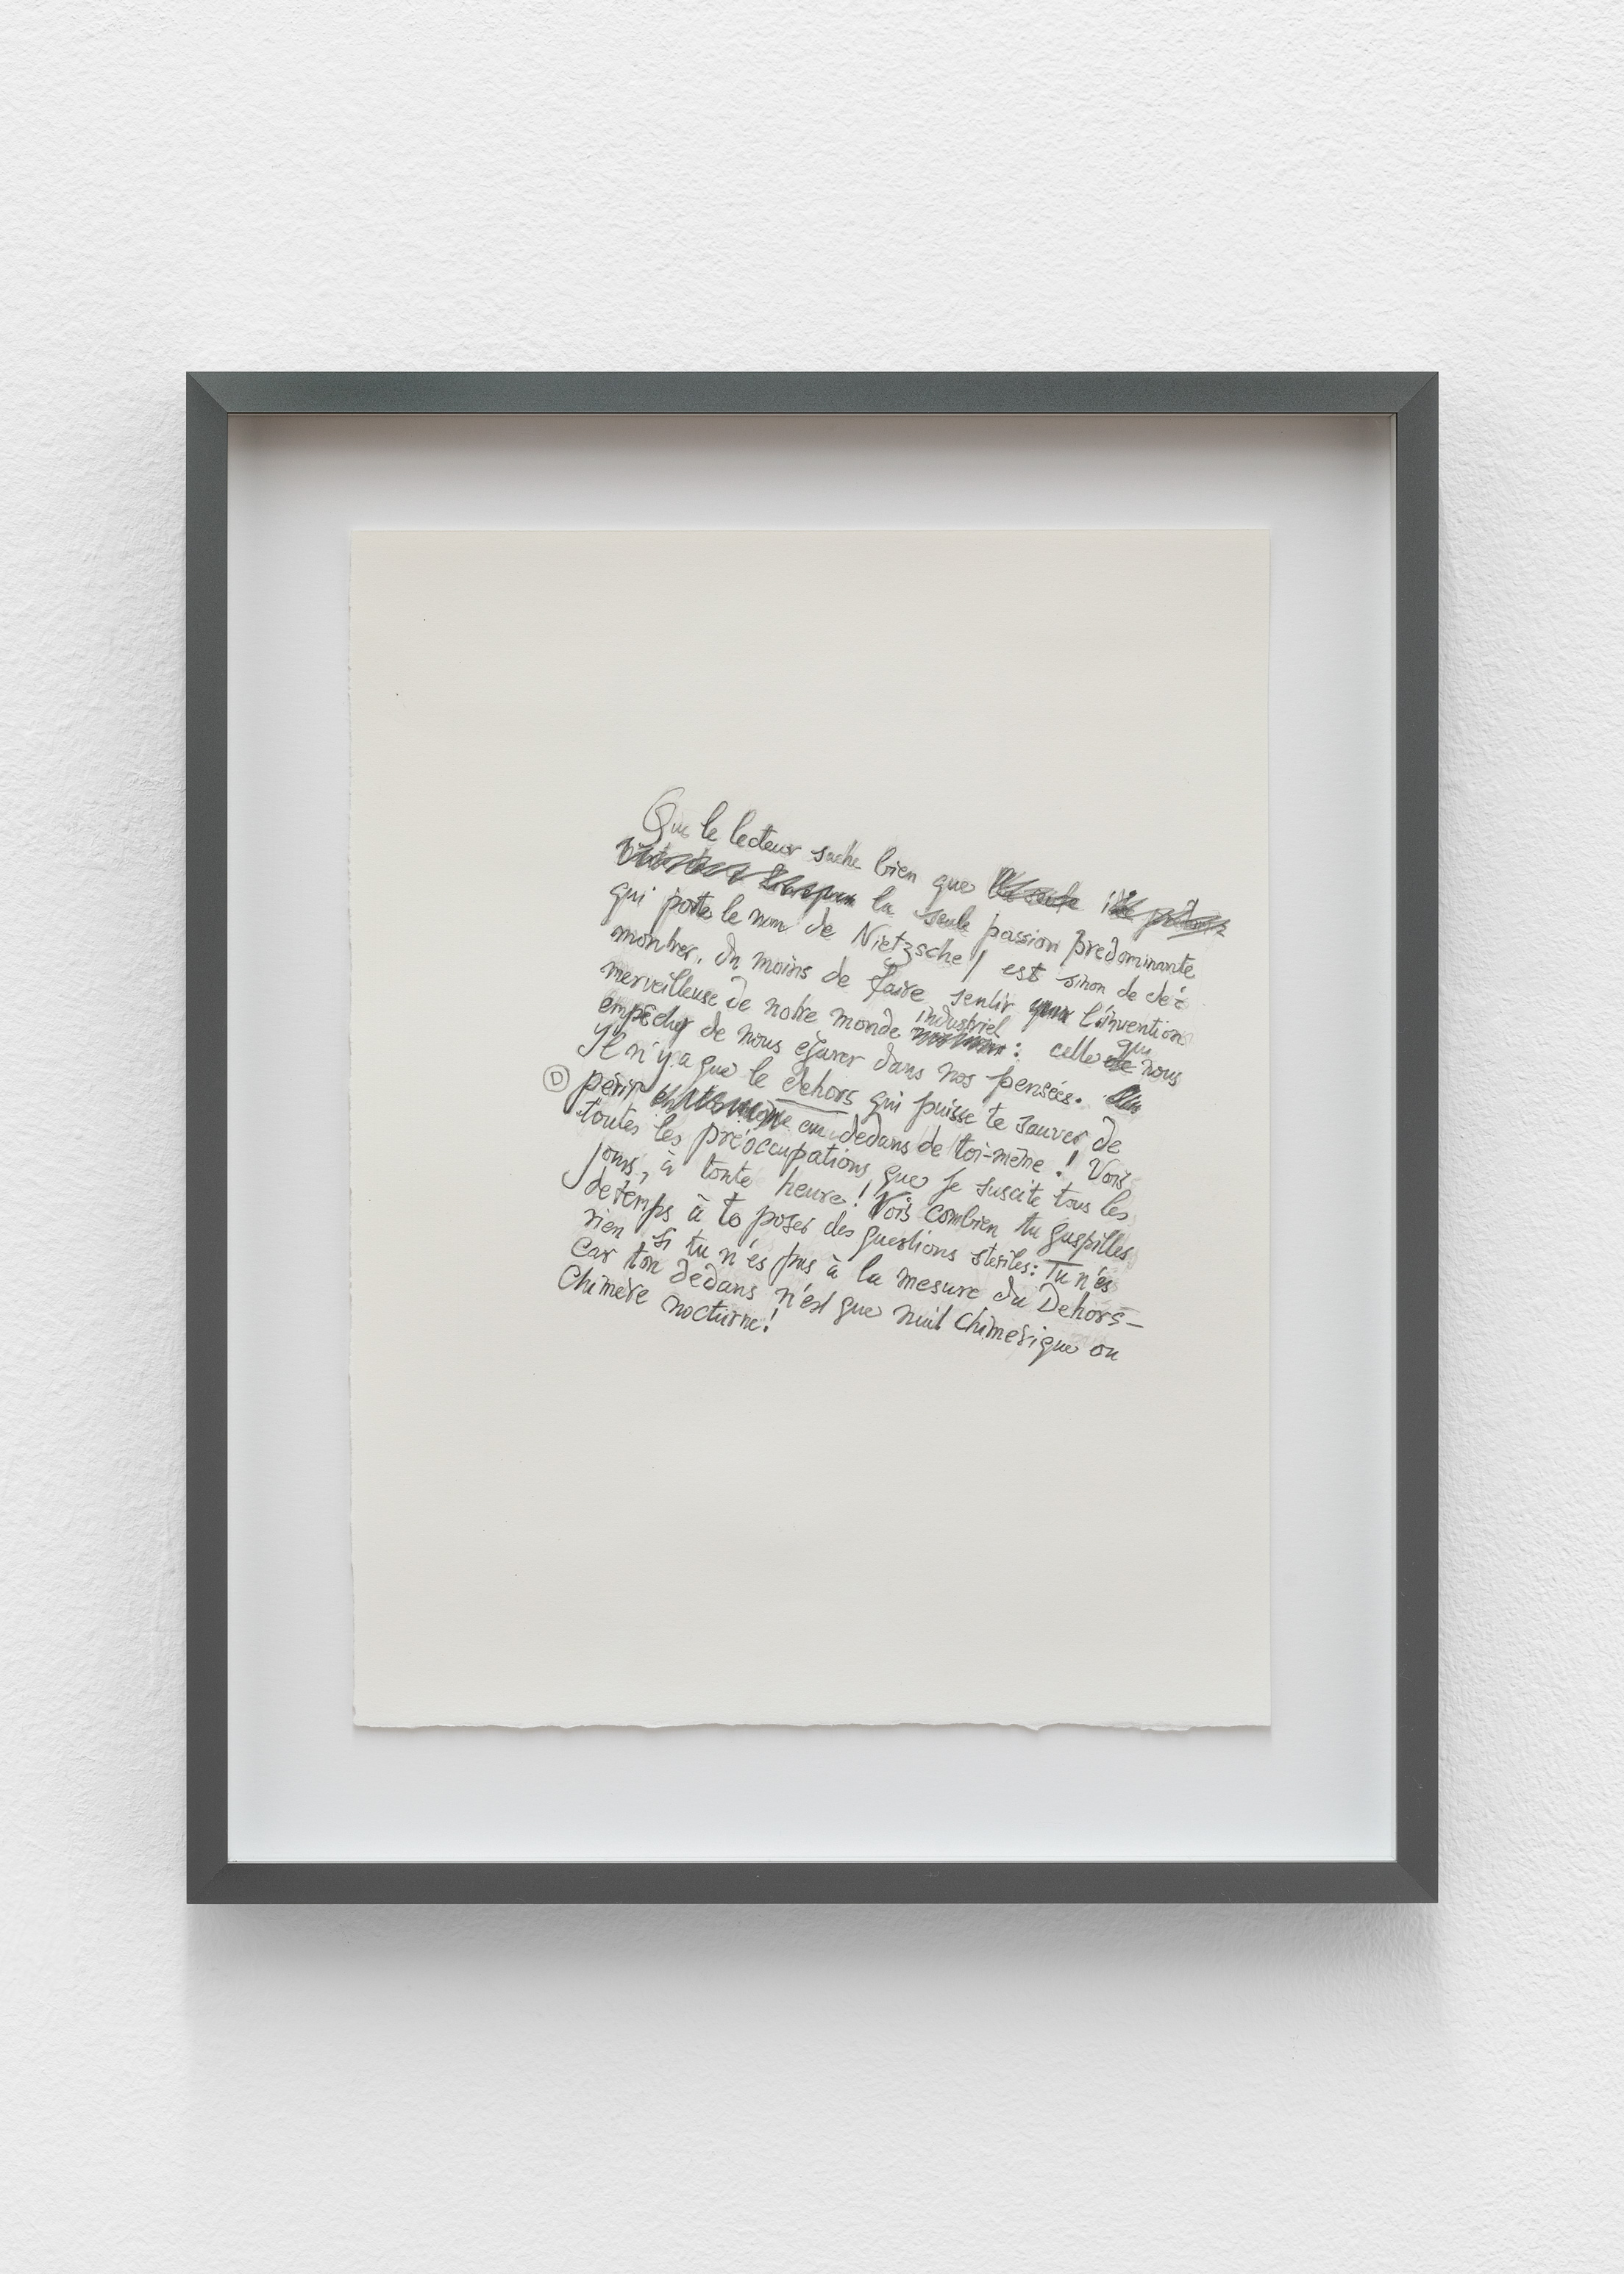 Que le lecteur sache bien que
la seule passion prédominante
qui porte le nom de Nietzsche / est sinon de dé-
montrer, du moins de faire sentir l'invention
merveilleuse de notre monde industriel : celle qui nous
empêcher de nous égarer dans nos pensées.
Il n'y a que le dehors qui puisse te sauver de
D périr au dedans de toi-même ! Vois
toutes les préoccupations que je suscite tous les
jours, à toute heure ! Vois combien tu gaspilles
de temps à te poser des questions stériles : Tu n'es
rien si tu n'és pas à la mesure du Dehors –
car ton dedans n'est que nuit chimérique ou
Chimère nocturne !